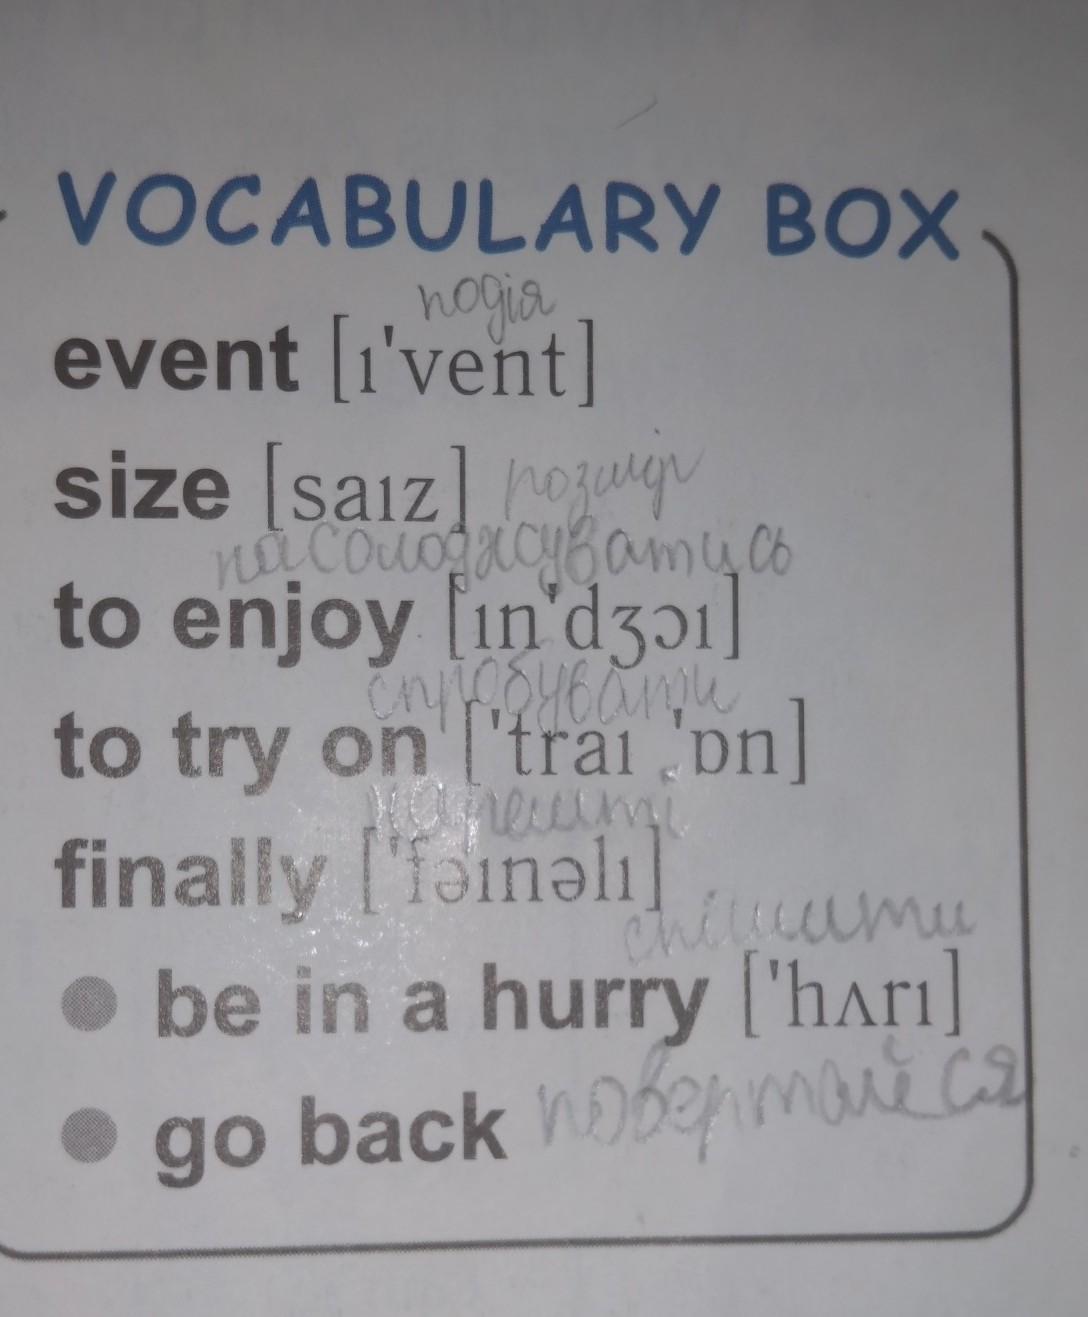 VOCABULARY BOX
подія
event [ɪ'vent]
size [saɪz] розмір
насолоджуватись
to enjoy [ɪn'dʒɔɪ]
спробувати
to try on ['traɪ ˌ'ɒn]
нарешті
finally ['fəɪnəlɪ]
спішити
● be in a hurry ['hʌrɪ]
● go back повертайся